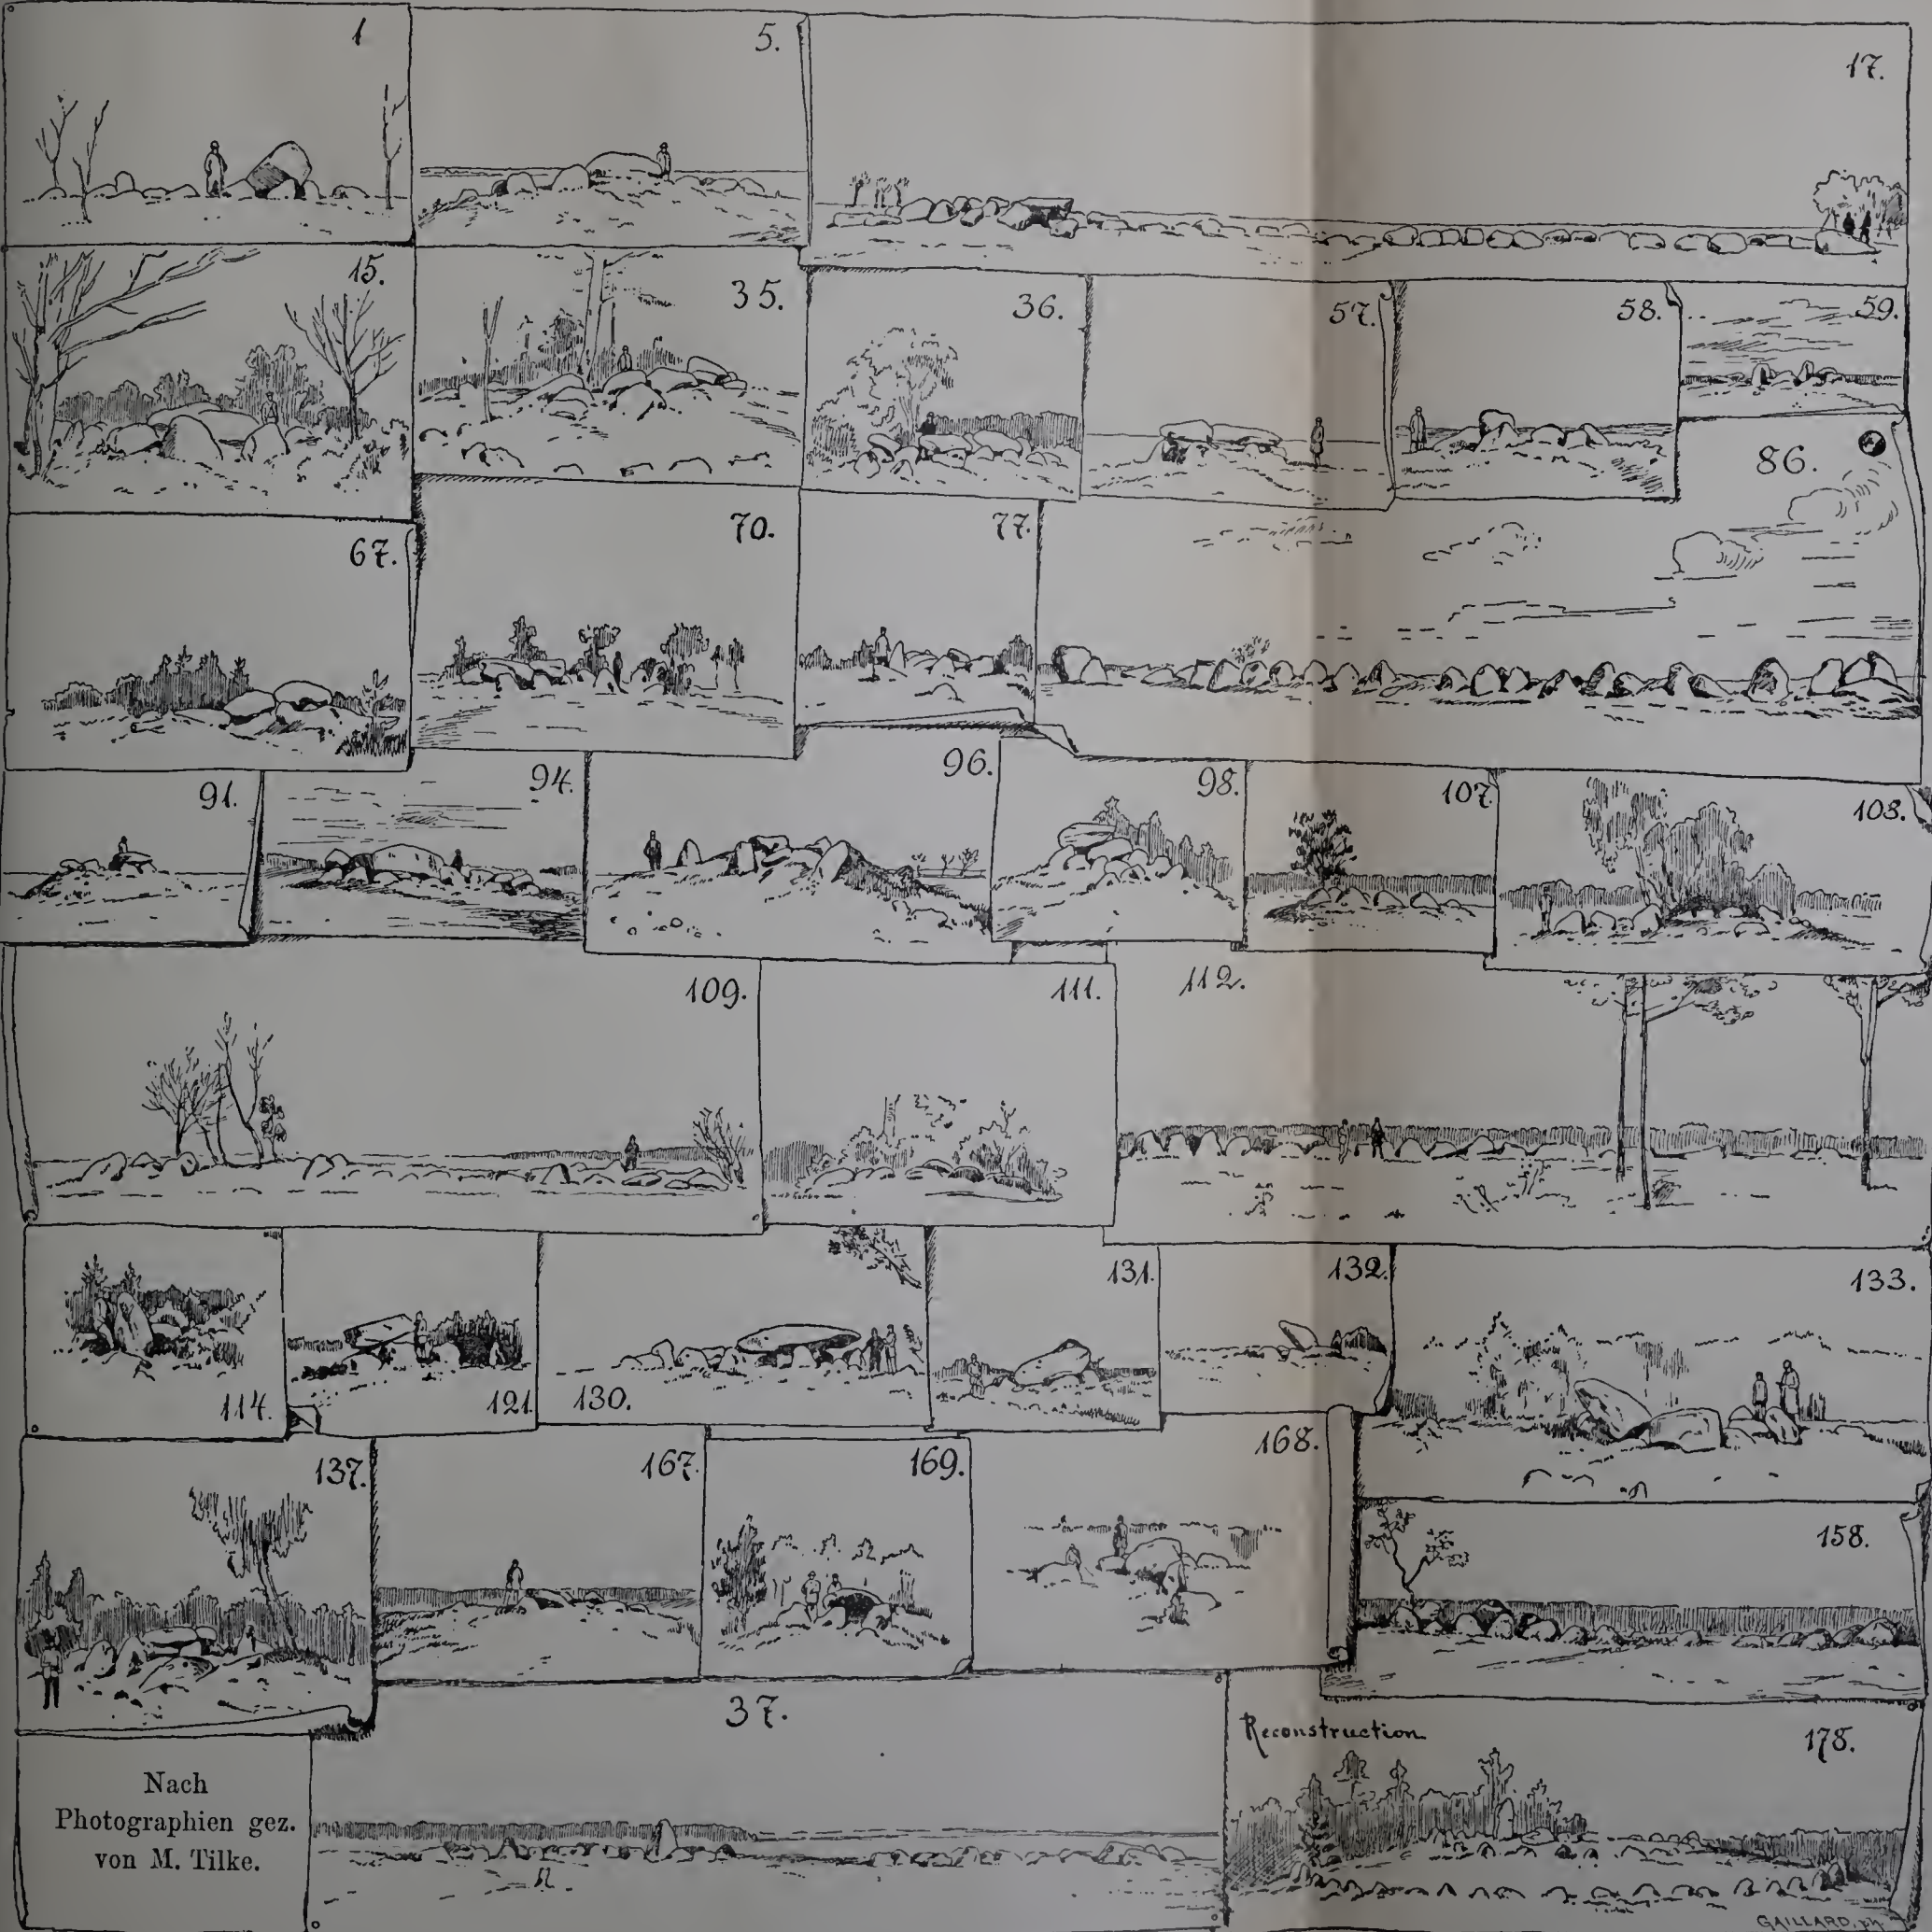 1
5.
17.
15.
35.
36.
57.
58.
59.
86.
67.
70.
77.
91.
94.
96.
98.
107.
108.
109.
111.
112.
114.
121.
130.
131.
132.
133.
137.
167.
169.
168.
158.
37.
Reconstruction
178.
Nach
Photographien gez.
von M. Tilke.
GAILLARD.ph